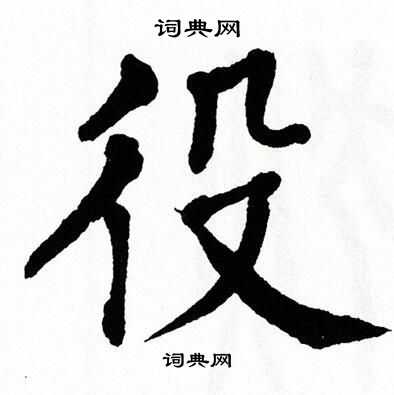 词典网
役
词典网